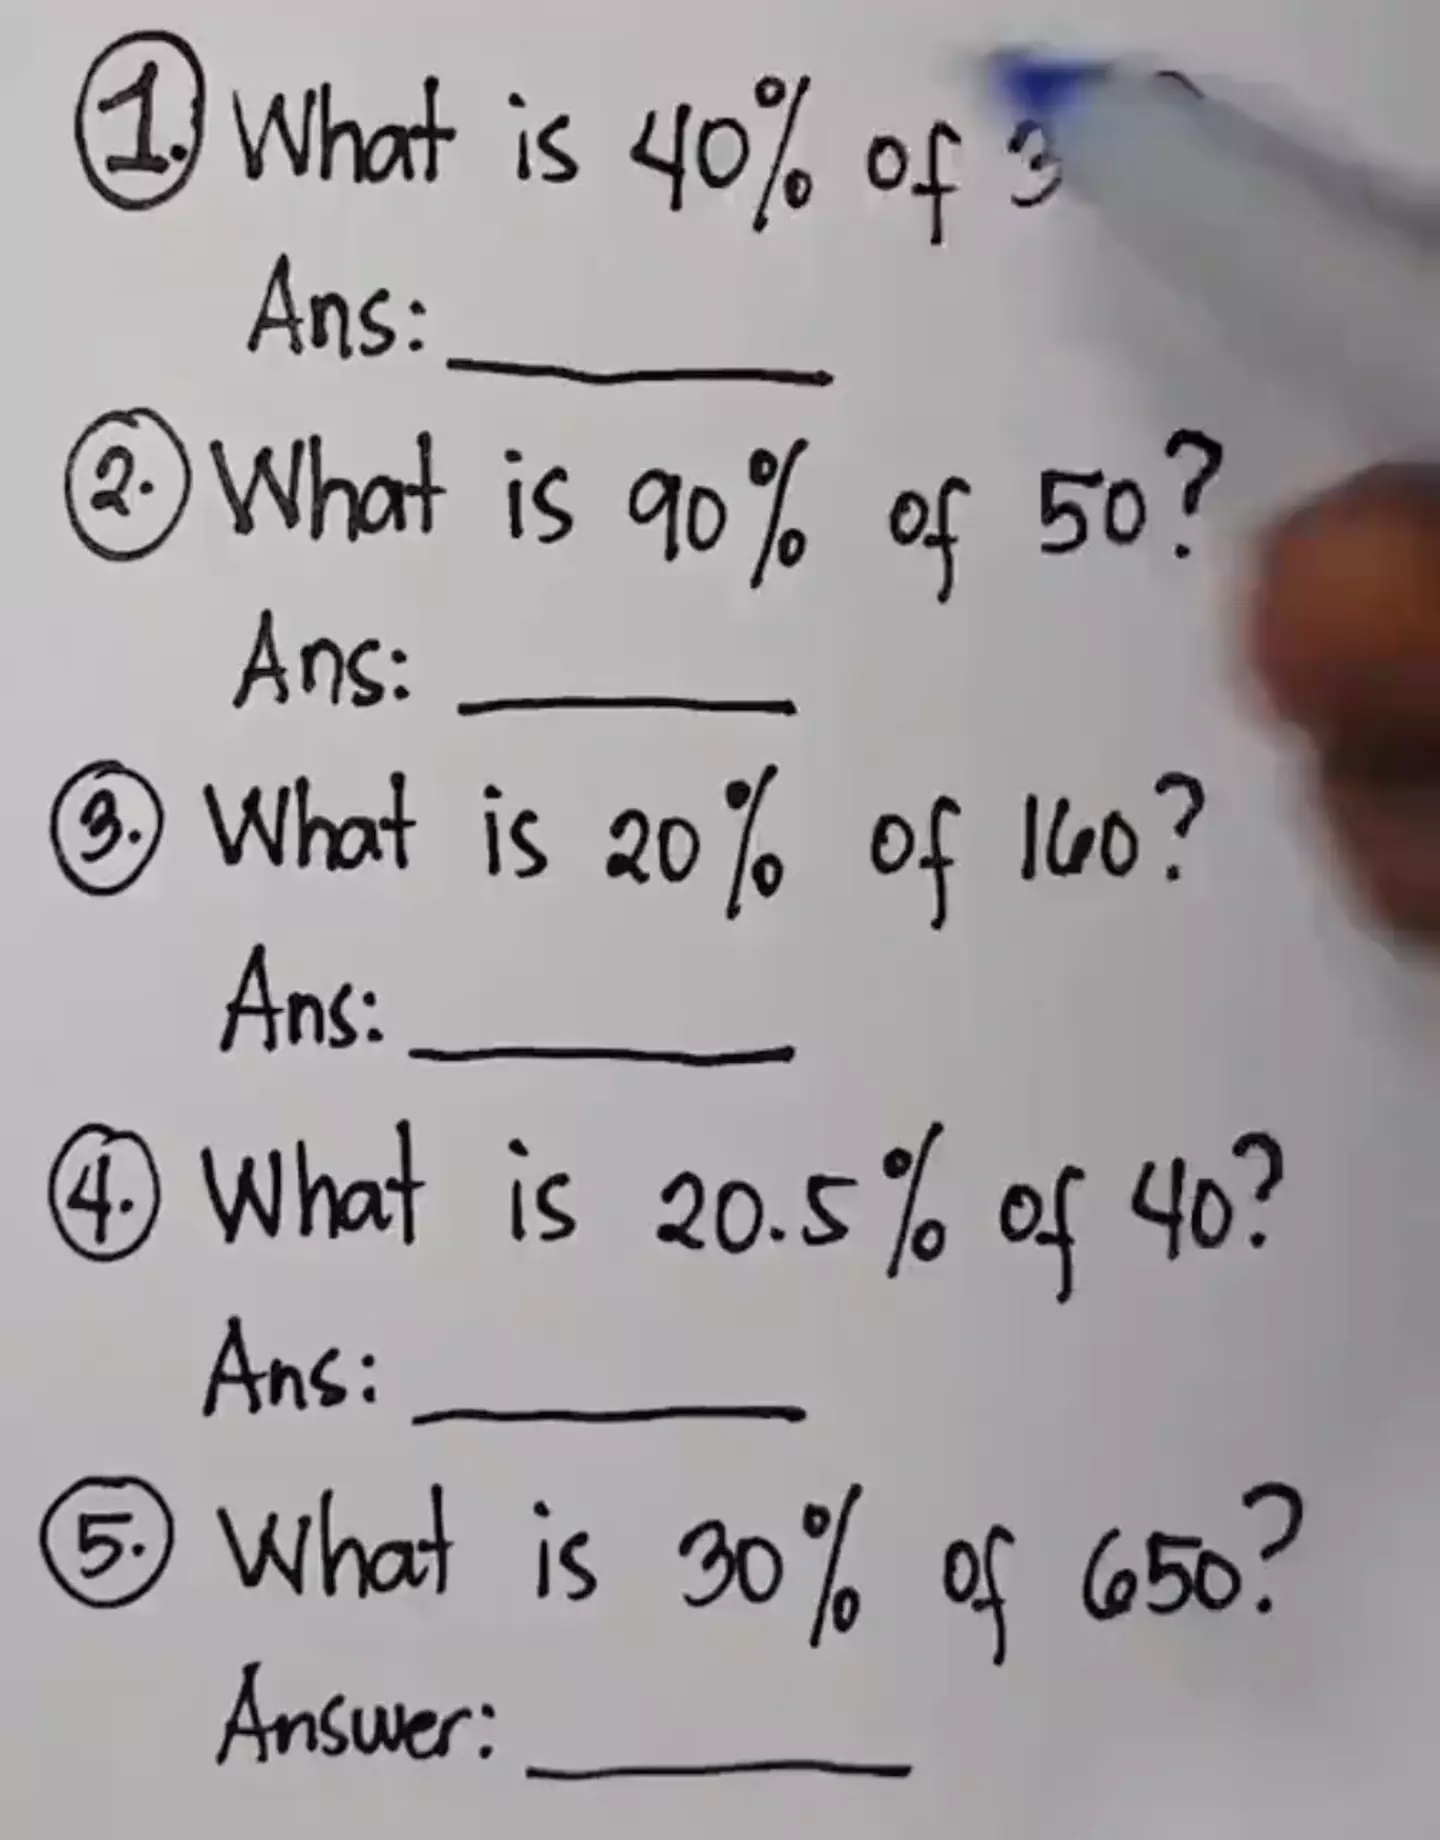 1. What is 40% of 3
Ans:
2. What is 90% of 50?
Ans:
3. What is 20% of 160?
Ans:
4. What is 20.5% of 40?
Ans:
5. What is 30% of 650?
Answer: